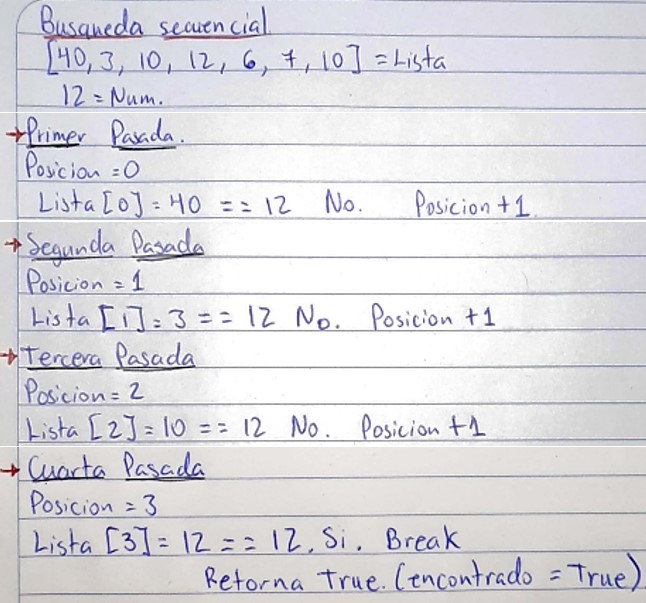 Busqueda secuencial
[40, 3, 10, 12, 6, 7, 10] = Lista
12 = Num.
→Primer Pasada.
Posicion = 0
Lista [0] = 40 == 12 No. Posicion +1
→ Segunda Pasada
Posicion = 1
Lista [1] = 3 == 12 No. Posicion +1
→ Tercera Pasada
Posicion = 2
Lista [2] = 10 == 12 No. Posicion +1
→ Cuarta Pasada
Posicion = 3
Lista [3] = 12 == 12, Si. Break
Retorna True. (encontrado = True)